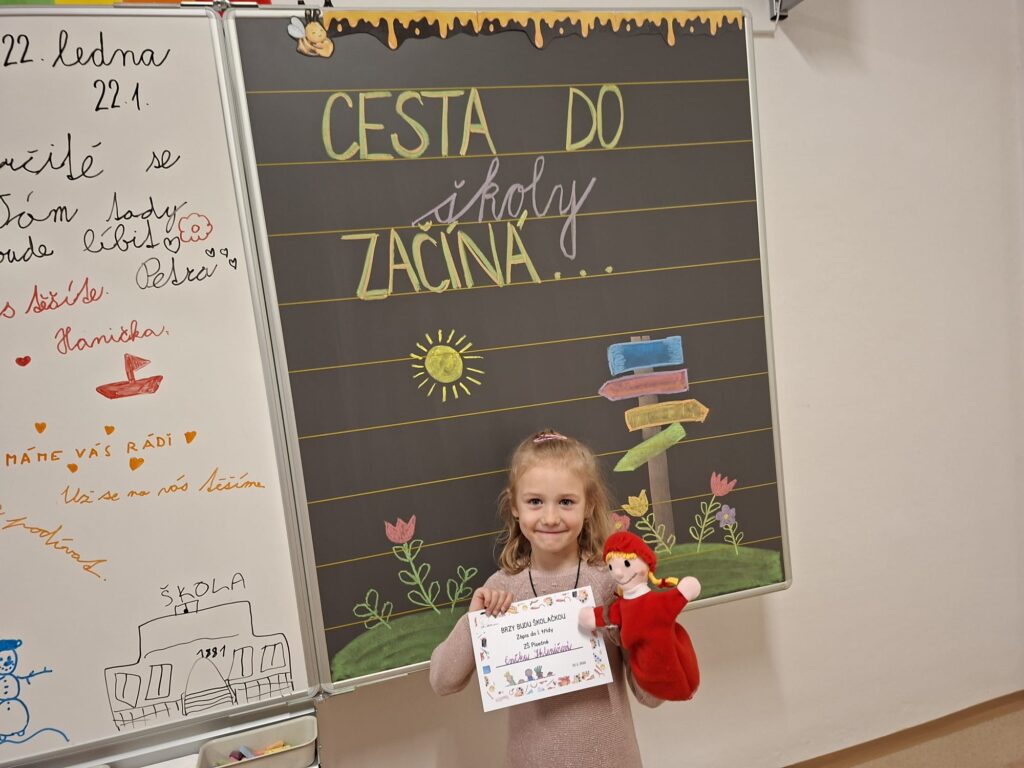 22. ledna
22.1.
určitě se
Vám tady
bude líbit
Petra
s těšíte.
Hanička.
MÁME VÁS RÁDI
Už se na vás těšíme
ŠKOLA
1881
CESTA DO
školy
ZAČÍNÁ...
BRZY BUDU ŠKOLAČKOU
Zápis do 1. třídy
ZŠ Písečná